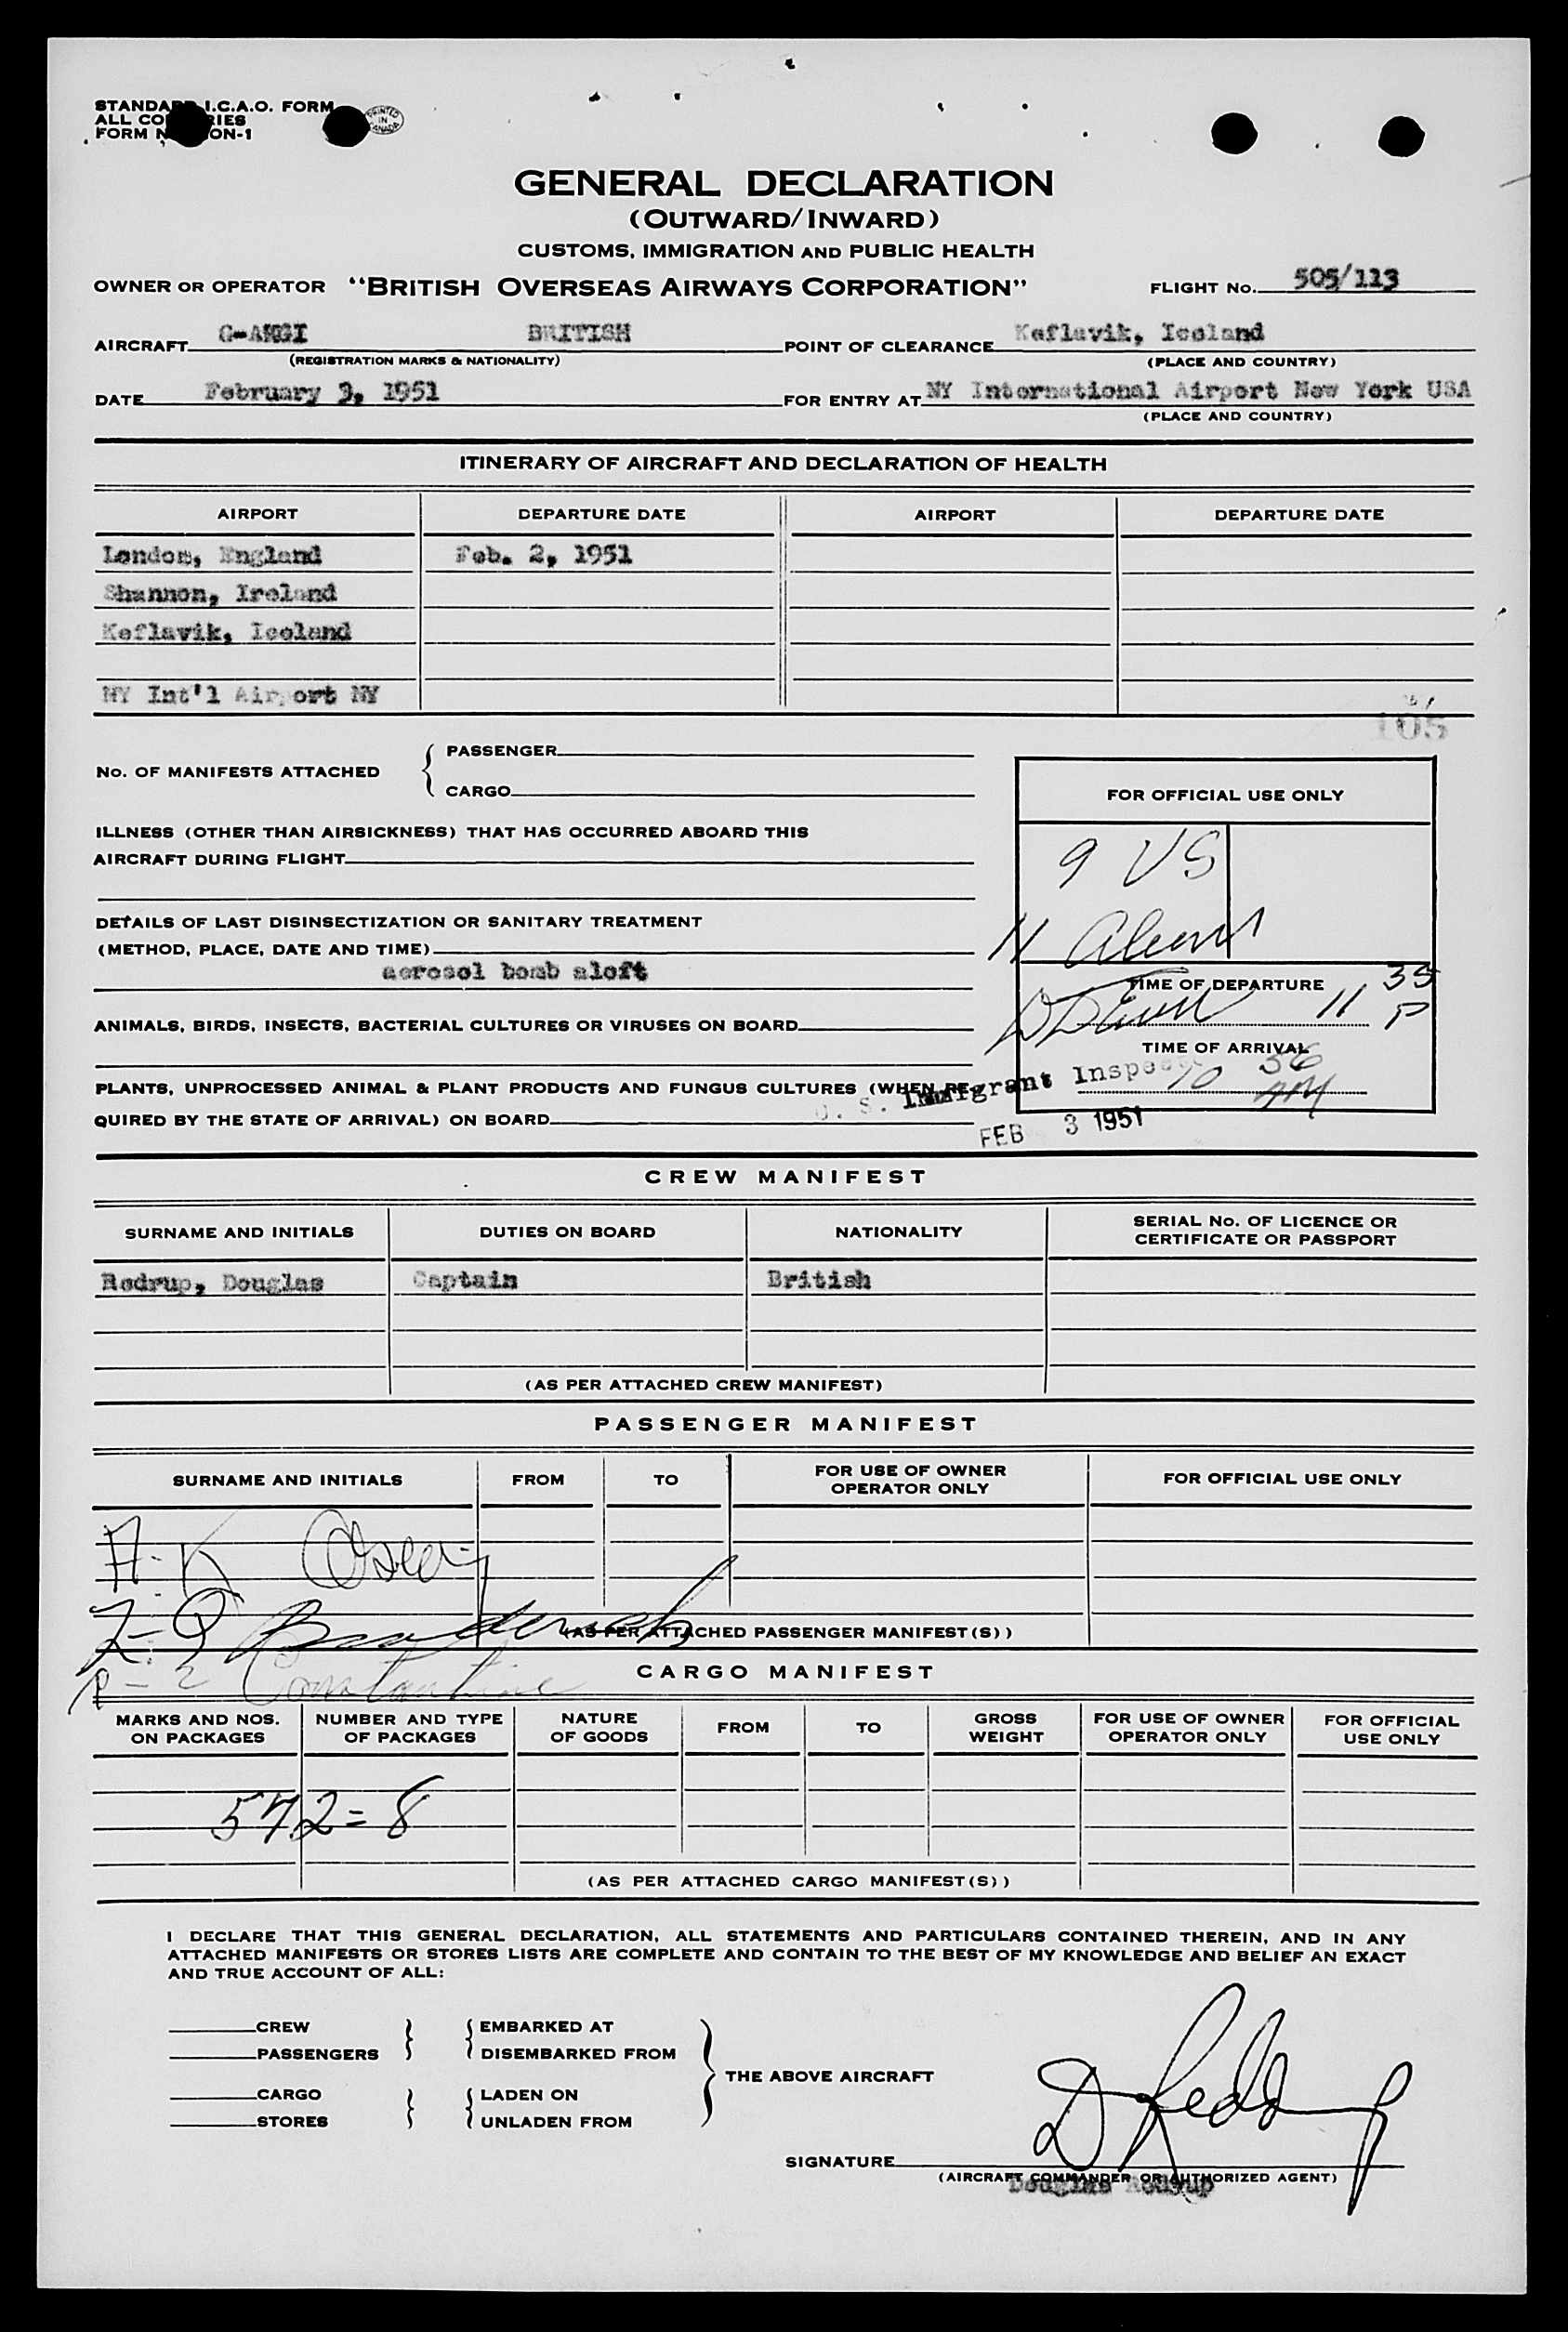 STANDARD I.C.A.O. FORM
ALL COUNTRIES
FORM No. ON-1
PRINTED IN CANADA
GENERAL DECLARATION
(OUTWARD/INWARD)
CUSTOMS, IMMIGRATION AND PUBLIC HEALTH
OWNER OR OPERATOR "BRITISH OVERSEAS AIRWAYS CORPORATION" FLIGHT No. 505/113
AIRCRAFT BRITISH POINT OF CLEARANCE Keflavik, Iceland
(REGISTRATION MARKS & NATIONALITY) (PLACE AND COUNTRY)
DATE February 3, 1951 FOR ENTRY AT NY International Airport New York USA
(PLACE AND COUNTRY)
ITINERARY OF AIRCRAFT AND DECLARATION OF HEALTH
AIRPORT DEPARTURE DATE AIRPORT DEPARTURE DATE
London, England Feb. 2, 1951
Shannon, Ireland
Keflavik, Iceland
NY Int'l Airport NY
105
No. OF MANIFESTS ATTACHED { PASSENGER
CARGO
FOR OFFICIAL USE ONLY
ILLNESS (OTHER THAN AIRSICKNESS) THAT HAS OCCURRED ABOARD THIS
AIRCRAFT DURING FLIGHT
9 US
DETAILS OF LAST DISINSECTIZATION OR SANITARY TREATMENT
(METHOD, PLACE, DATE AND TIME)
11 Aliens
aerosol bomb aloft
TIME OF DEPARTURE
11 35 P
ANIMALS, BIRDS, INSECTS, BACTERIAL CULTURES OR VIRUSES ON BOARD
TIME OF ARRIVAL
10 56 AM
PLANTS, UNPROCESSED ANIMAL & PLANT PRODUCTS AND FUNGUS CULTURES (WHEN RE-
QUIRED BY THE STATE OF ARRIVAL) ON BOARD
U. S. Immigrant Inspector
FEB 3 1951
CREW MANIFEST
SURNAME AND INITIALS DUTIES ON BOARD NATIONALITY SERIAL No. OF LICENCE OR CERTIFICATE OR PASSPORT
Redrup, Douglas Captain British
(AS PER ATTACHED CREW MANIFEST)
PASSENGER MANIFEST
SURNAME AND INITIALS FROM TO FOR USE OF OWNER OPERATOR ONLY FOR OFFICIAL USE ONLY
(AS PER ATTACHED PASSENGER MANIFEST(S))
Constantine
CARGO MANIFEST
MARKS AND NOS. ON PACKAGES NUMBER AND TYPE OF PACKAGES NATURE OF GOODS FROM TO GROSS WEIGHT FOR USE OF OWNER OPERATOR ONLY FOR OFFICIAL USE ONLY
572=8
(AS PER ATTACHED CARGO MANIFEST(S))
I DECLARE THAT THIS GENERAL DECLARATION, ALL STATEMENTS AND PARTICULARS CONTAINED THEREIN, AND IN ANY
ATTACHED MANIFESTS OR STORES LISTS ARE COMPLETE AND CONTAIN TO THE BEST OF MY KNOWLEDGE AND BELIEF AN EXACT
AND TRUE ACCOUNT OF ALL:
CREW EMBARKED AT
PASSENGERS DISEMBARKED FROM
THE ABOVE AIRCRAFT
CARGO LADEN ON
STORES UNLADEN FROM
D Redrup
SIGNATURE
(AIRCRAFT COMMANDER OR AUTHORIZED AGENT)
Douglas Redrup